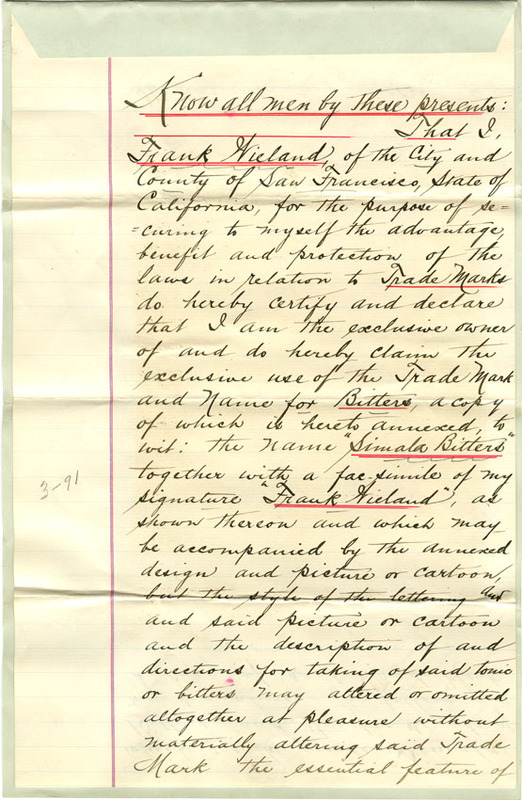 Know all men by these presents:
That I,
Frank Wieland, of the City and
County of San Francisco, State of
California, for the purpose of se=
=curing to myself the advantage,
benefit and protection of the
laws in relation to Trade Marks
do hereby certify and declare
that I am the exclusive owner
of and do hereby claim the
exclusive use of the Trade Mark
and Name for Bitters, a copy
of which is hereto annexed, to
wit: the name "Simala Bitters"
together with a fac-simile of my
signature "Frank Wieland", as
3-91
shown thereon and which may
be accompanied by the annexed
design and picture or cartoon,
but the style of the lettering and
and said picture or cartoon
and the description of and
directions for taking of said tonic
or bitters may altered or omitted
altogether at pleasure without
materially altering said Trade
Mark the essential feature of